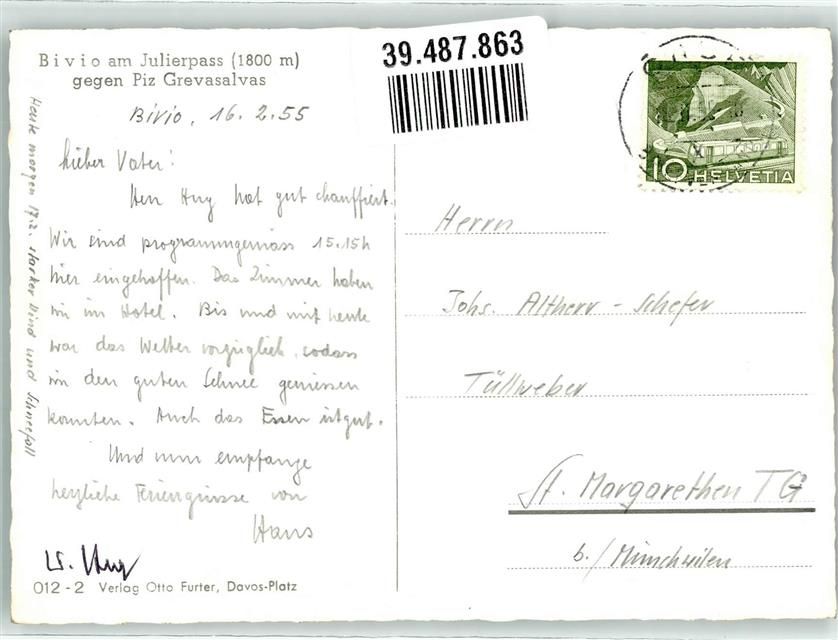 Bivio am Julierpass (1800 m)
gegen Piz Grevasalvas
39.487.863
Bivio, 16.2.55
Lieber Vater!
Herr Hug hat gut chauffiert.
Wir sind programmgemäss 15.15h
hier eingetroffen. Das Zimmer haben
wir im Hotel. Bis und mit heute
war das Wetter vorzüglich, sodass
wir den guten Schnee geniessen
konnten. Auch das Essen ist gut.
Und nun empfange
herzliche Feriengrüsse von
Hans
W. Hug
Heute morgen 17.2. starker Wind und Schneefall
012-2 Verlag Otto Furter, Davos-Platz
10 HELVETIA
Herrn
Johs. Altherr-Schefer
Tüllweber
St. Margarethen TG
b./Münchwilen